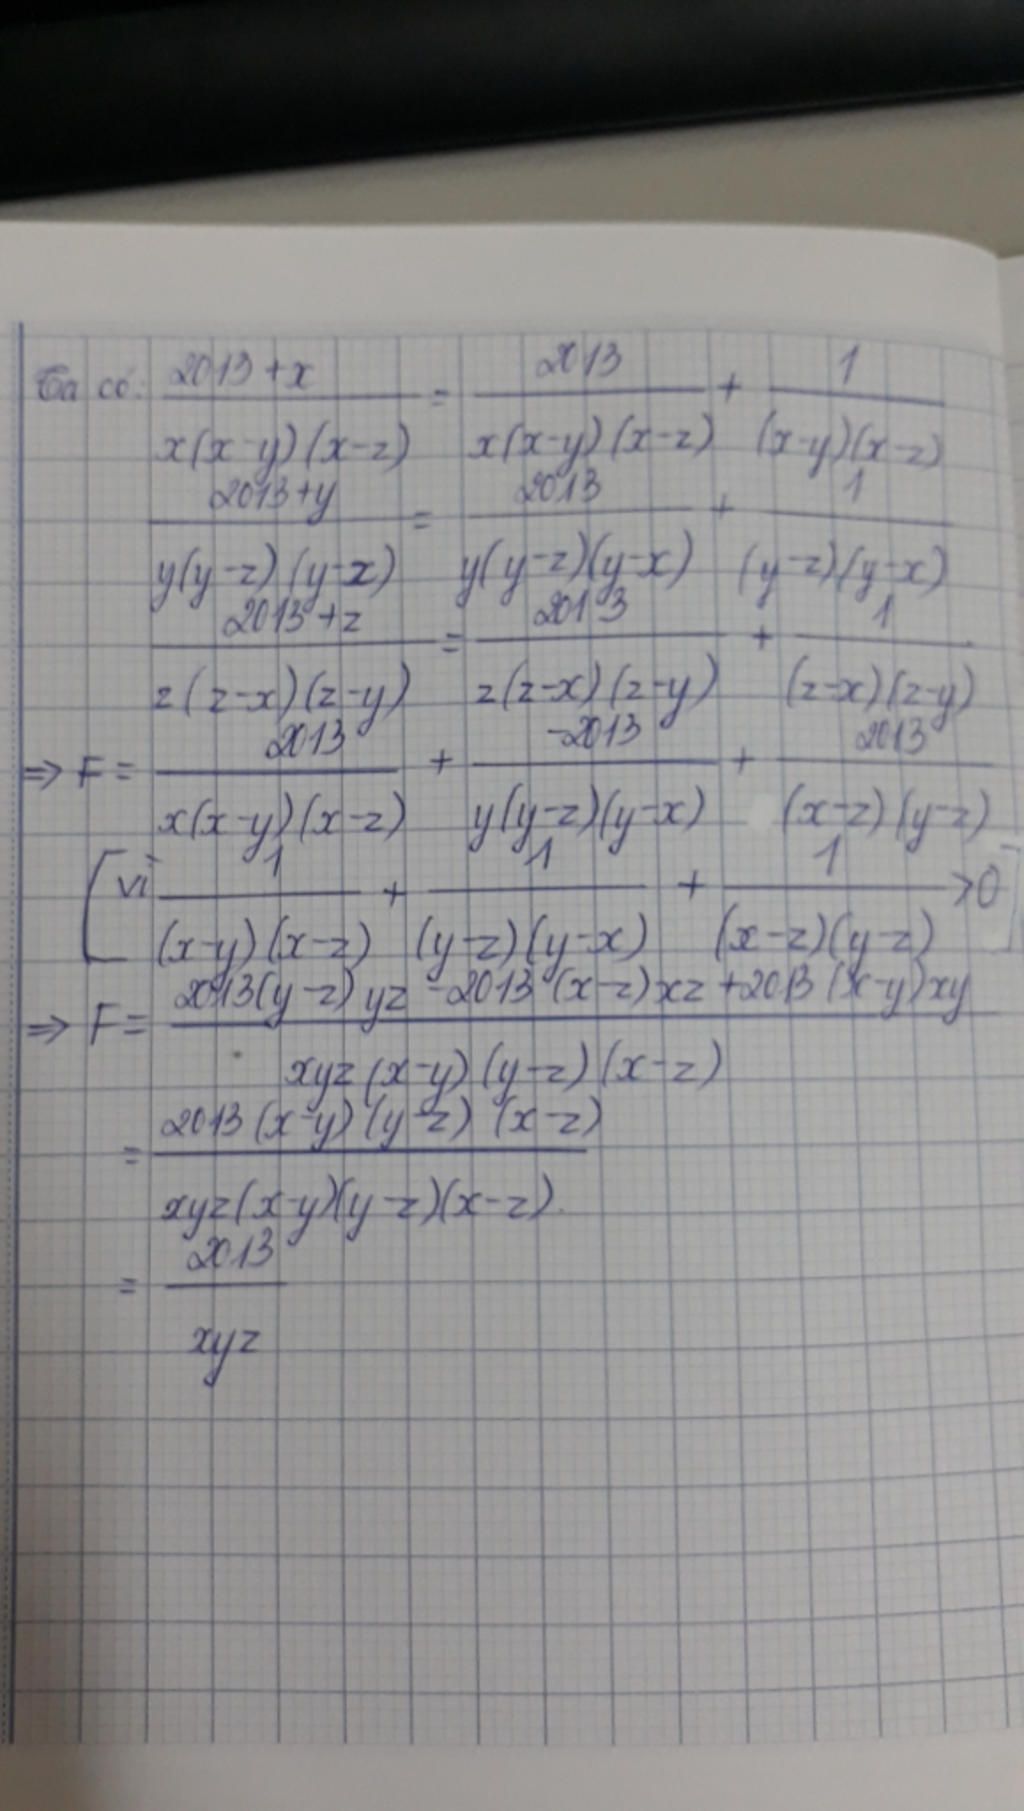 Ta có: 2013+x / x(x-y)(x-z) = 2013 / x(x-y)(x-z) + 1 / (x-y)(x-z)
2013+y / y(y-z)(y-x) = 2013 / y(y-z)(y-x) + 1 / (y-z)(y-x)
2013+z / z(z-x)(z-y) = 2013 / z(z-x)(z-y) + 1 / (z-x)(z-y)
=> F = 2013 / x(x-y)(x-z) + -2013 / y(y-z)(y-x) + 2013 / (x-z)(y-z)
[vì 1 / (x-y)(x-z) + 1 / (y-z)(y-x) + 1 / (x-z)(y-z) >0]
=> F = 2013(y-z)yz -2013(x-z)xz +2013(x-y)xy / xyz(x-y)(y-z)(x-z)
= 2013(x-y)(y-z)(x-z) / xyz(x-y)(y-z)(x-z).
= 2013 / xyz